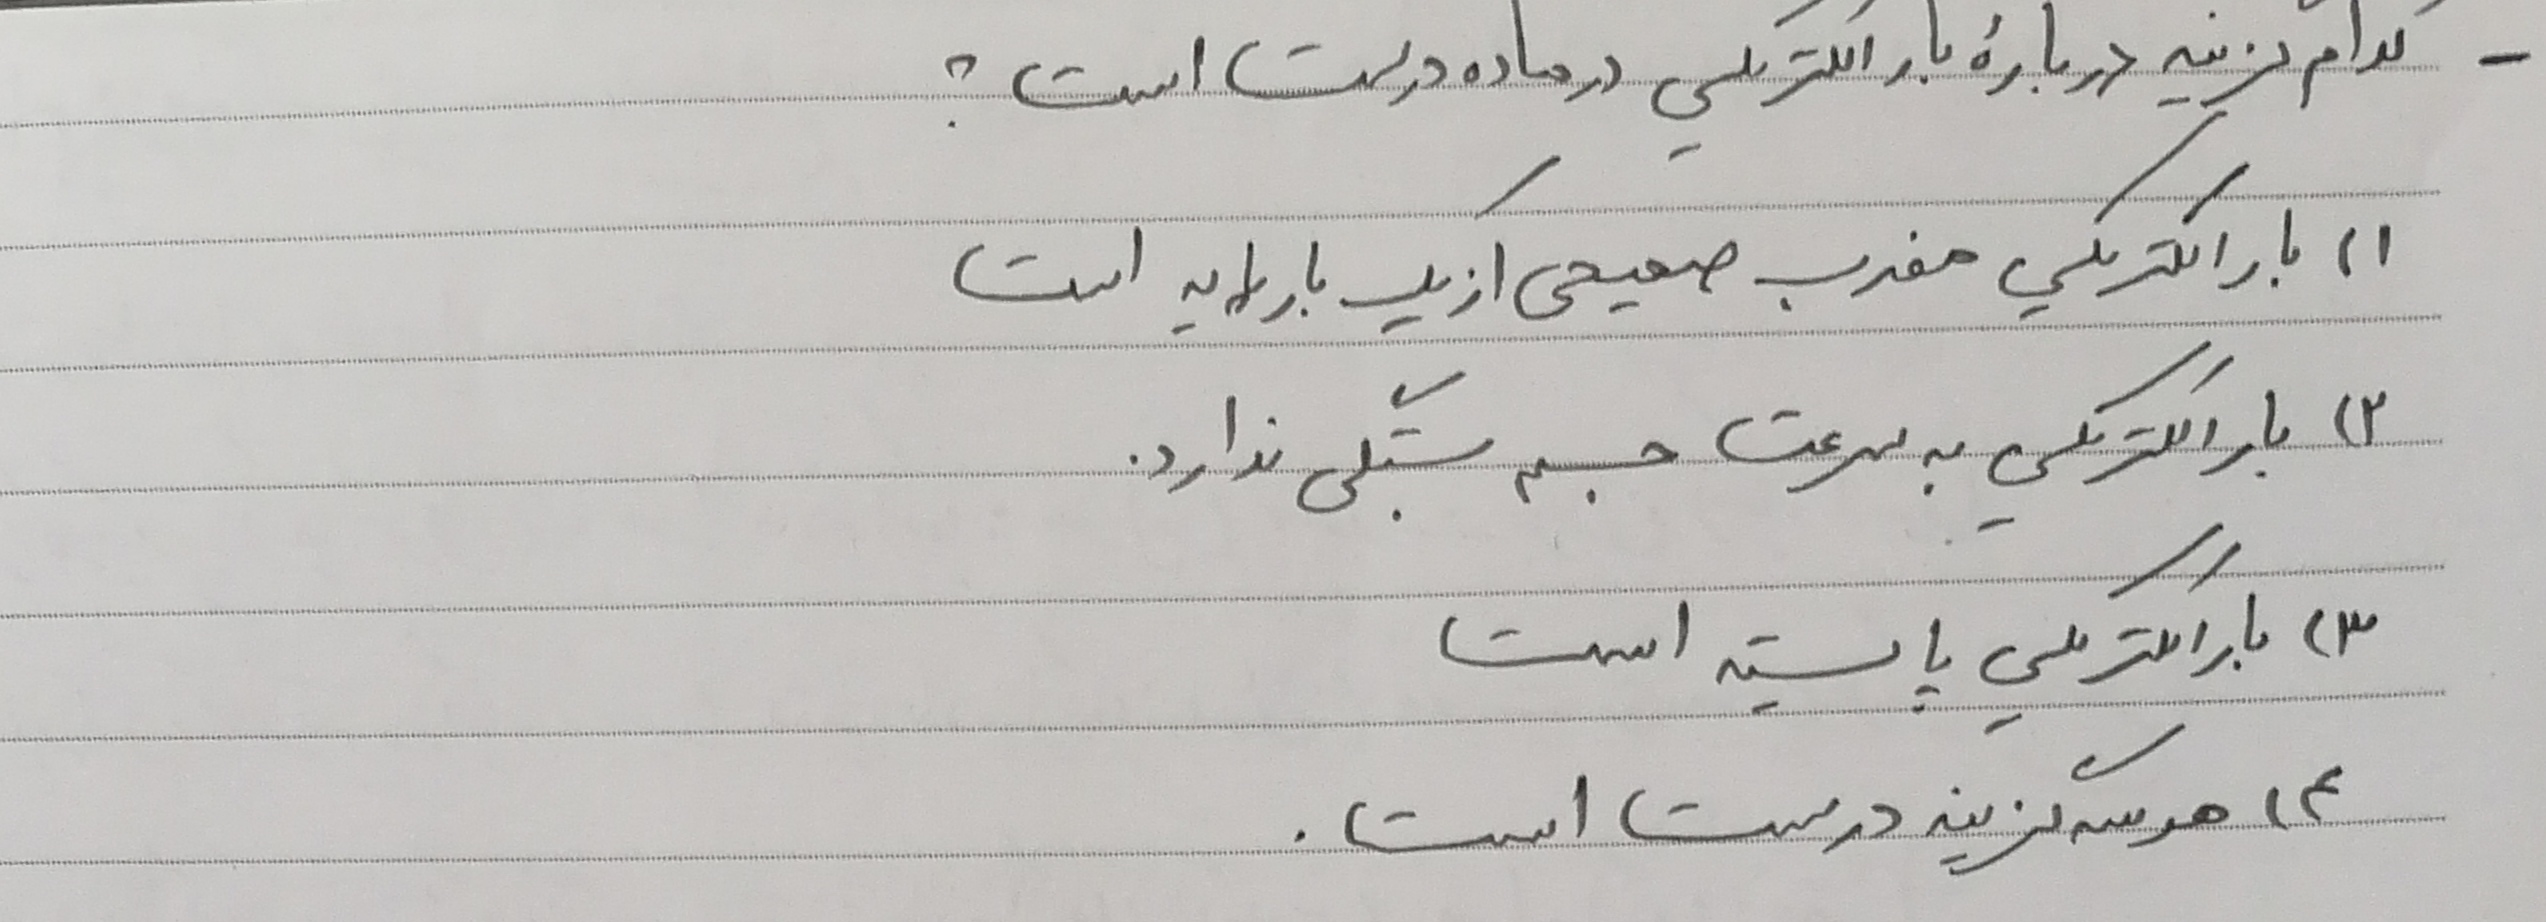 - کدام گزینه دربارهٔ بار الکتریکی در ماده درست است؟
۱) بار الکتریکی مضرب صحیحی از یک بار پایه است
۲) بار الکتریکی به سرعت جسم بستگی ندارد.
۳) بار الکتریکی پایسته است
۴) هر سه گزینه درست است.